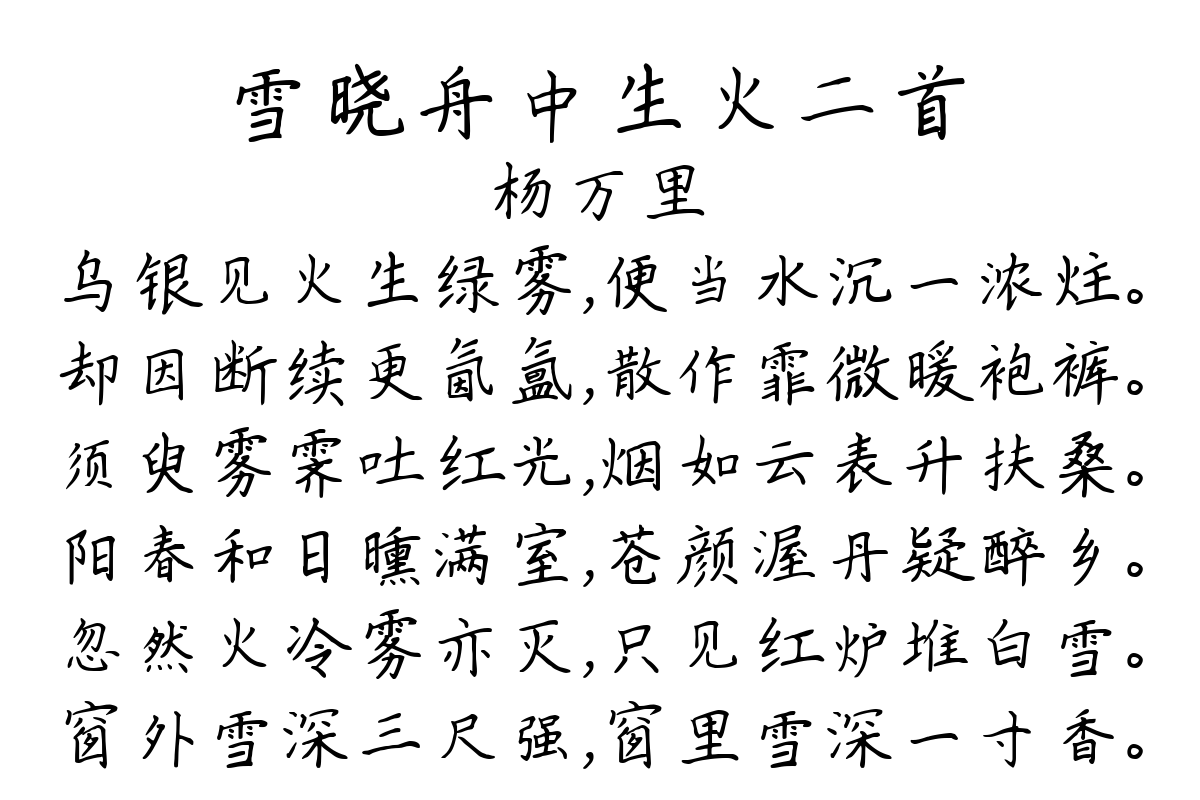 雪晓舟中生火二首
杨万里
乌银见火生绿雾,便当水沉一浓炷。
却因断续更氤氲,散作霏微暖袍裤。
须臾雾霁吐红光,烟如云表升扶桑。
阳春和日曛满室,苍颜渥丹疑醉乡。
忽然火冷雾亦灭,只见红炉堆白雪。
窗外雪深三尺强,窗里雪深一寸香。